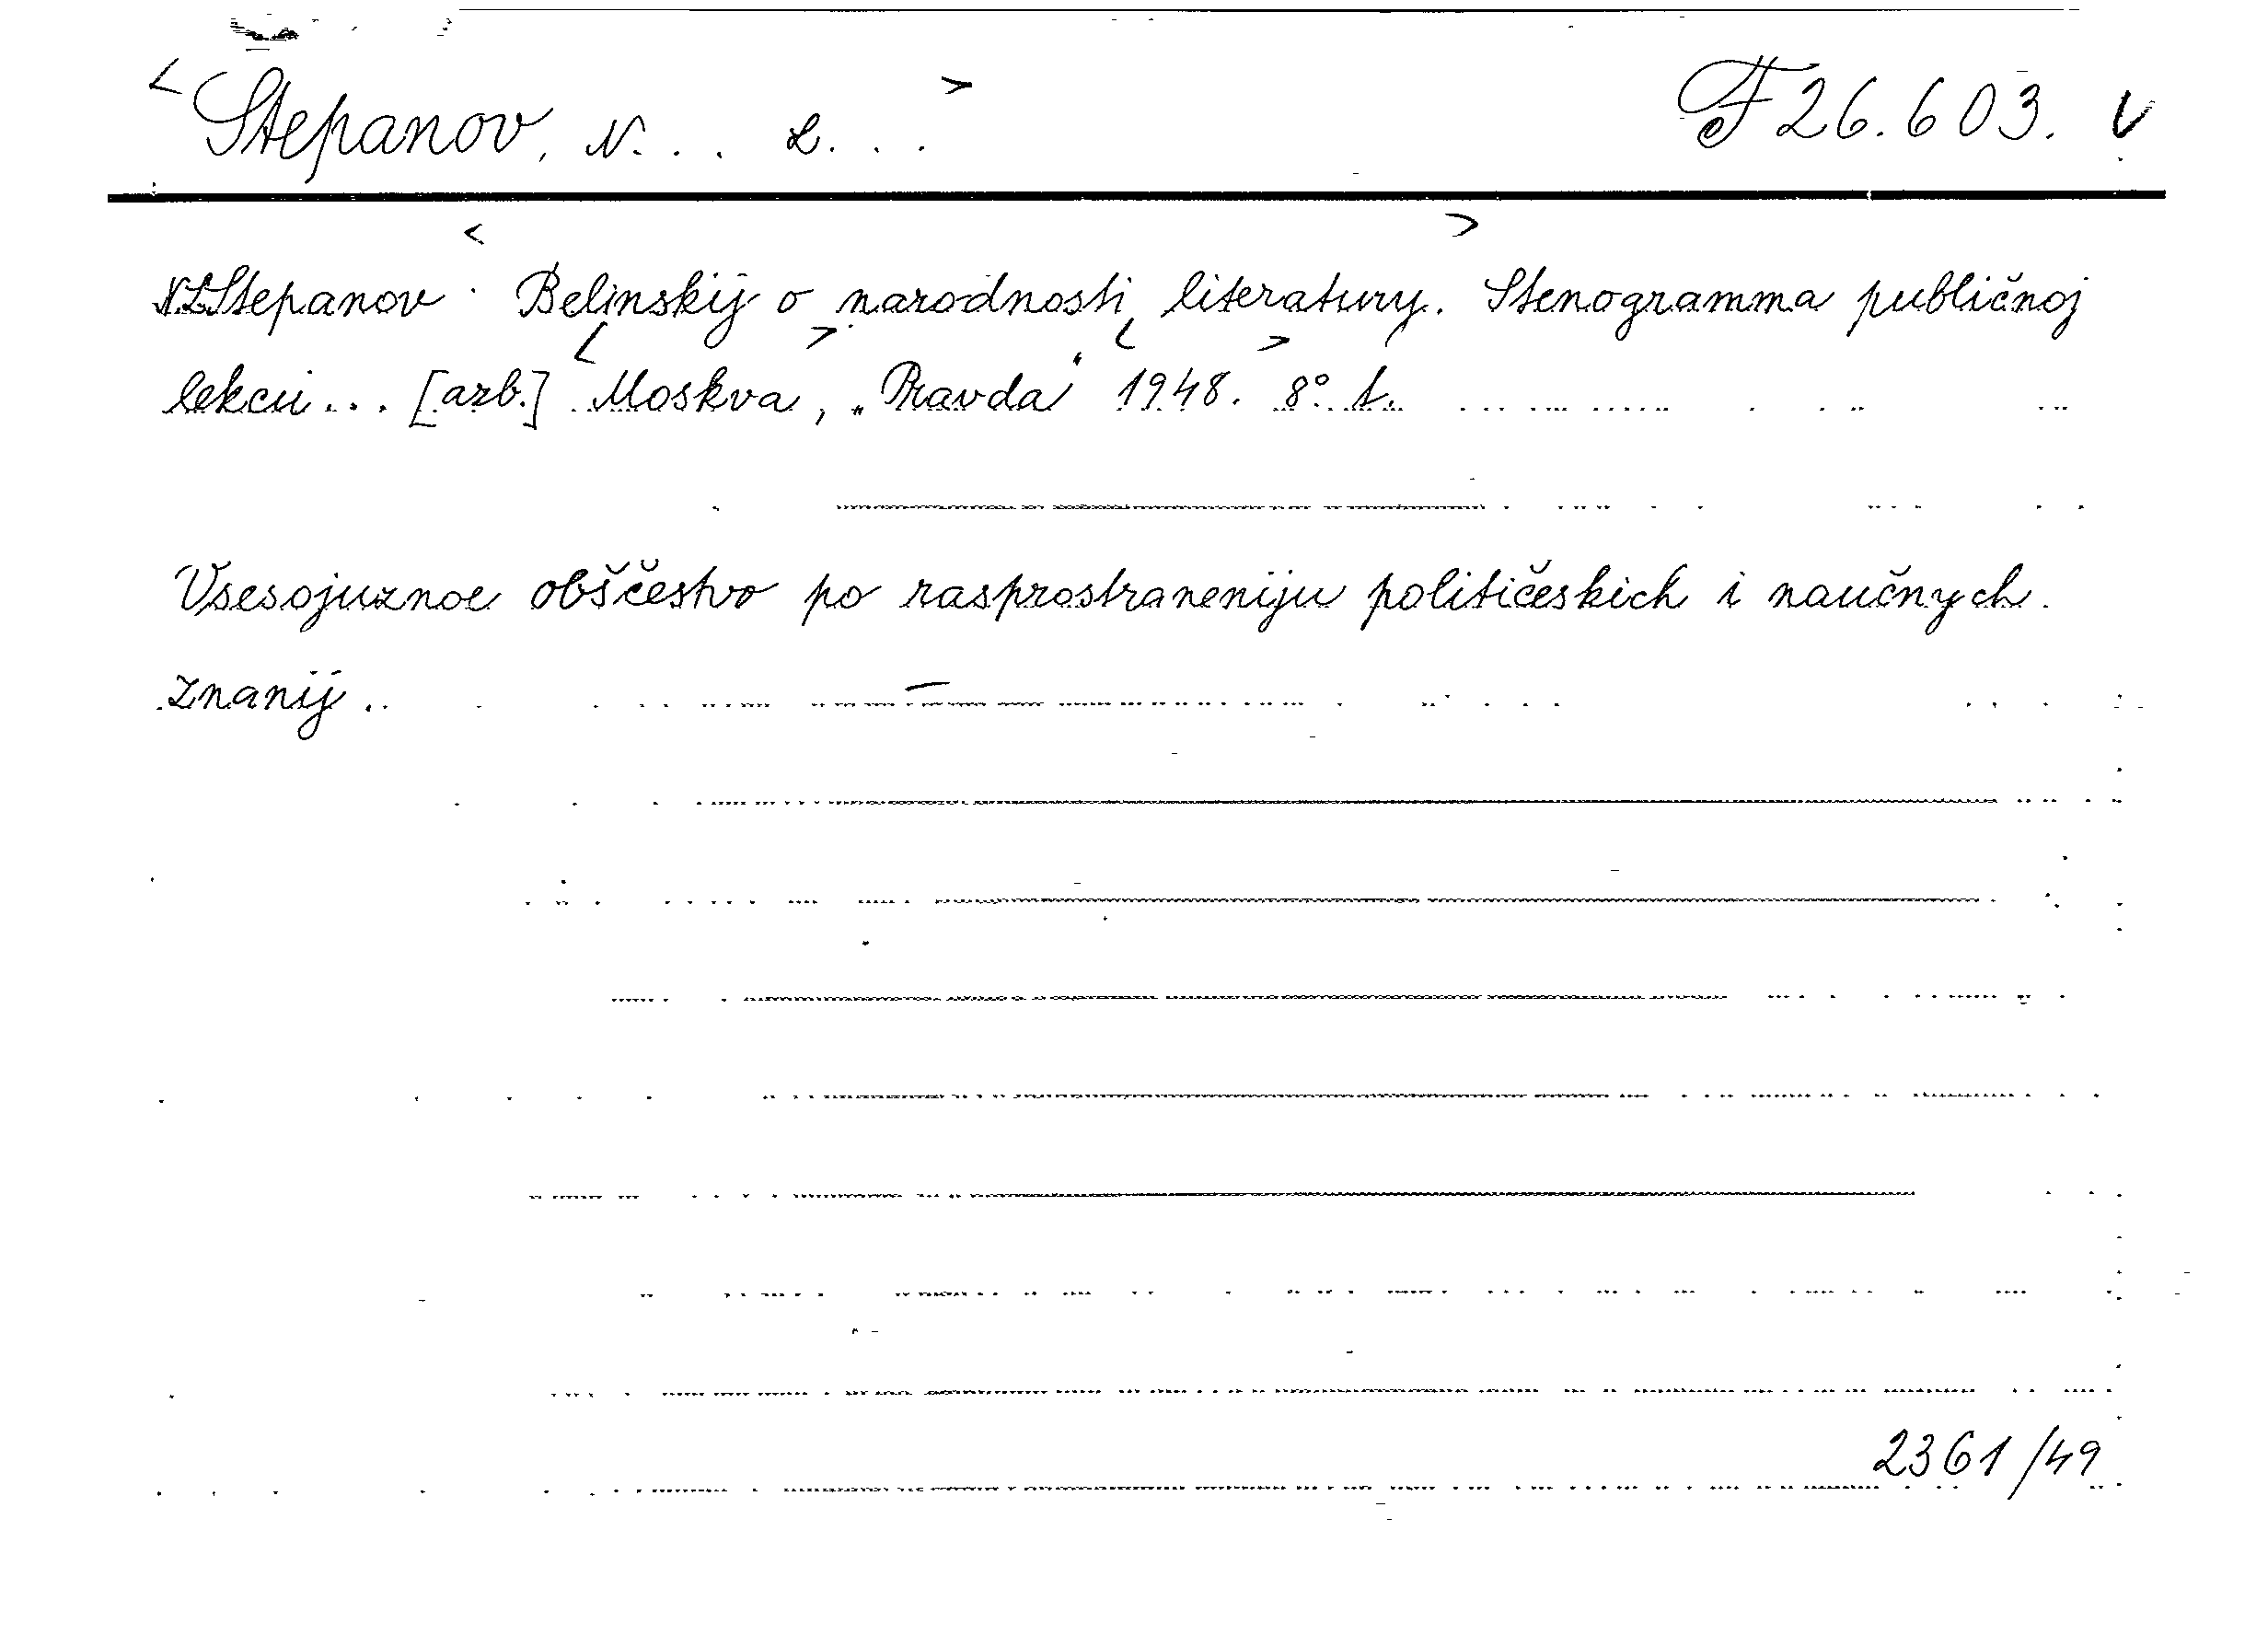 <Stepanov, N... L...> F 26.603. v
N.L.Stepanov: <Belinskij o narodnosti literatury.> Stenogramma publičnoj
lekcii... [azb.] <Moskva>, „Pravda“ <1948.> 8° t.
Vsesojuznoe obščestvo po rasprostraneniju političeskich i naučnych
znanij..
2361/49